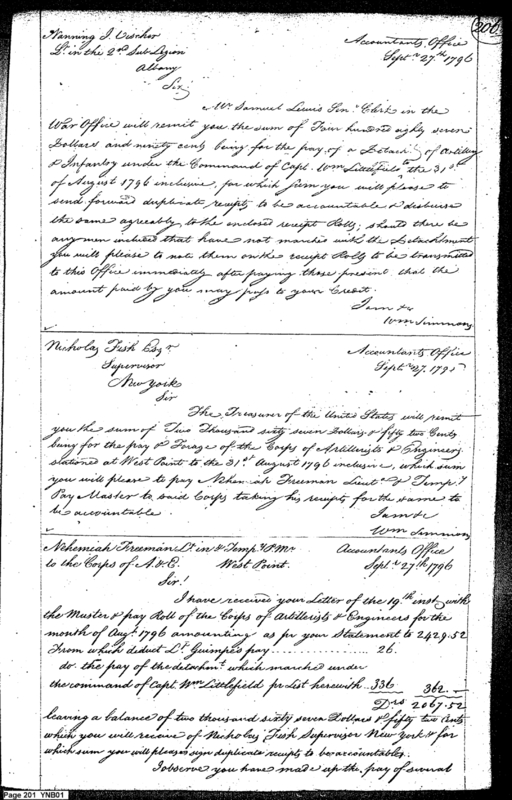 206
Nanning J. Visscher
Lt. in the 2nd Sub Legion
Albany
Accountants Office
Septr 27th 1796
Sir
Mr Samuel Lewis Senr Clerk in the
War Office will remit you the sum of Four hundred eighty seven
Dollars and ninety cents being for the pay of a Detacht of Artillery
& Infantry under the Command of Capt. Wm Littlefield to the 31st
of August 1796 inclusive, for which sum you will please to
send forward duplicate receipts to be accountable & disburse
the same agreeably to the enclosed receipt Rolls; should there be
any men included that have not marched with the Detachment
you will please to note them on the receipt Rolls to be transmitted
to this Office immediately after paying those present that the
amount paid by you may pass to your Credit.
I am &c
Wm Simmons
Nicholas Fish Esqr
Supervisor
New York
Accountants Office
Septr 27. 179
Sir
The Treasurer of the United States will remit
you the sum of Two Thousand sixty seven Dollars & fifty two Cents
being for the pay & Forage of the Corps of Artillerists & Engineers
stationed at West Point to the 31st August 1796 inclusive, which sum
you will please to pay Nehemiah Freeman Lieut & Tempy
Pay Master to said Corps taking his receipts for the same to
be accountable.
I am &c
Wm Simmons
Nehemiah Freeman Lt. in & Tempy P. Mr
to the Corps of A. & E. West Point.
Accountants Office
Septr 27th 1796
Sir!
I have received your Letter of the 19th inst. with
the Muster & pay Roll of the Corps of Artillerists & Engineers for the
month of Augt 1796 amounting as pr your Statement to 2429.52
From which deduct Lt Guimpes pay ............ 26.
do. the pay of the detachmt which marched under
the command of Capt. Wm Littlefield pr List herewith 336 362.
Drs 2067.52
leaving a balance of two thousand sixty seven Dollars & fifty two Cents
which you will receive of Nicholas Fish Supervisor New York & for
which sum you will please sign duplicate receipts to be accountable.
I observe you have made up the pay of several
Page 201 YNB01